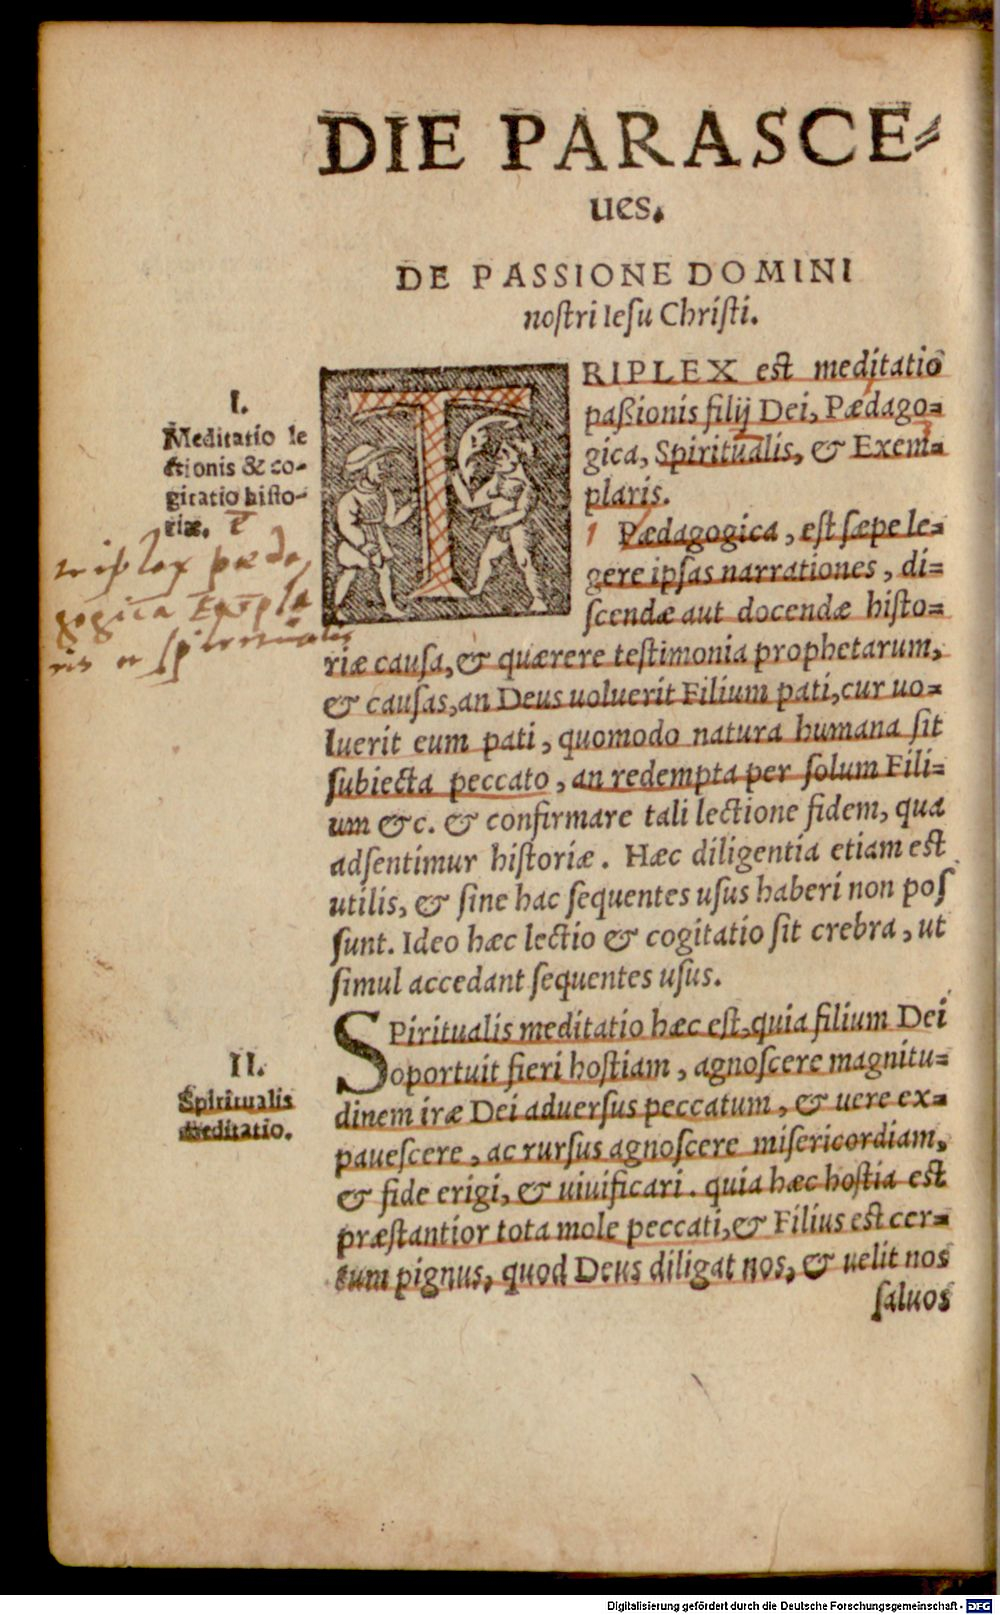 DIE PARASCE-
ues.
DE PASSIONE DOMINI
nostri Iesu Christi.
TRIPLEX est meditatio
paßionis filij Dei, Pædago-
gica, Spiritualis, & Exem-
plaris.
1 Pædagogica, est sæpe le-
gere ipsas narrationes, di-
scendæ aut docendæ histo-
riæ causa, & quærere testimonia prophetarum,
& causas, an Deus uoluerit Filium pati, cur uo-
luerit eum pati, quomodo natura humana sit
subiecta peccato, an redempta per solum Fili-
um &c. & confirmare tali lectione fidem, qua
adsentimur historiæ. Hæc diligentia etiam est
utilis, & sine hac sequentes usus haberi non pos
sunt. Ideo hæc lectio & cogitatio sit crebra, ut
simul accedant sequentes usus.
SPiritualis meditatio hæc est, quia filium Dei
oportuit fieri hostiam, agnoscere magnitu-
dinem iræ Dei aduersus peccatum, & uere ex-
pauescere, ac rursus agnoscere misericordiam,
& fide erigi, & uiuificari. quia hæc hostia est
præstantior tota mole peccati, & Filius est cer-
tum pignus, quod Deus diligat nos, & uelit nos
saluos
I.
Meditatio le
ctionis & co-
gitatio histo-
riæ.
triplex pæda
gogica
II.
Spiritualis
meditatio.
Digitalisierung gefördert durch die Deutsche Forschungsgemeinschaft - DFG